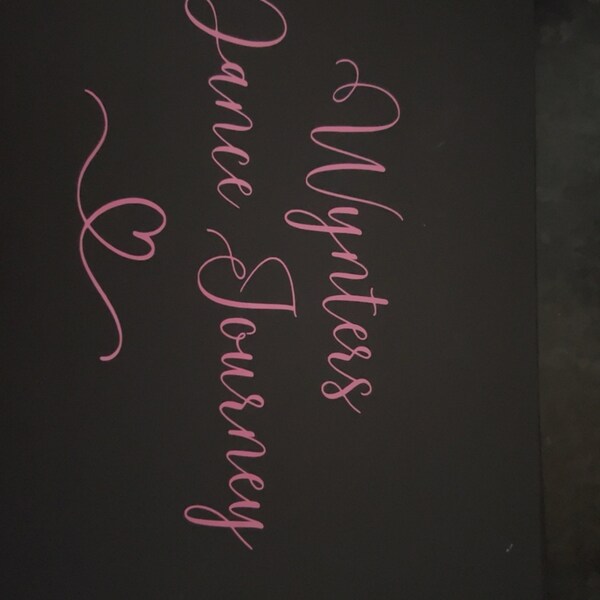 Wynters
Dance Journey